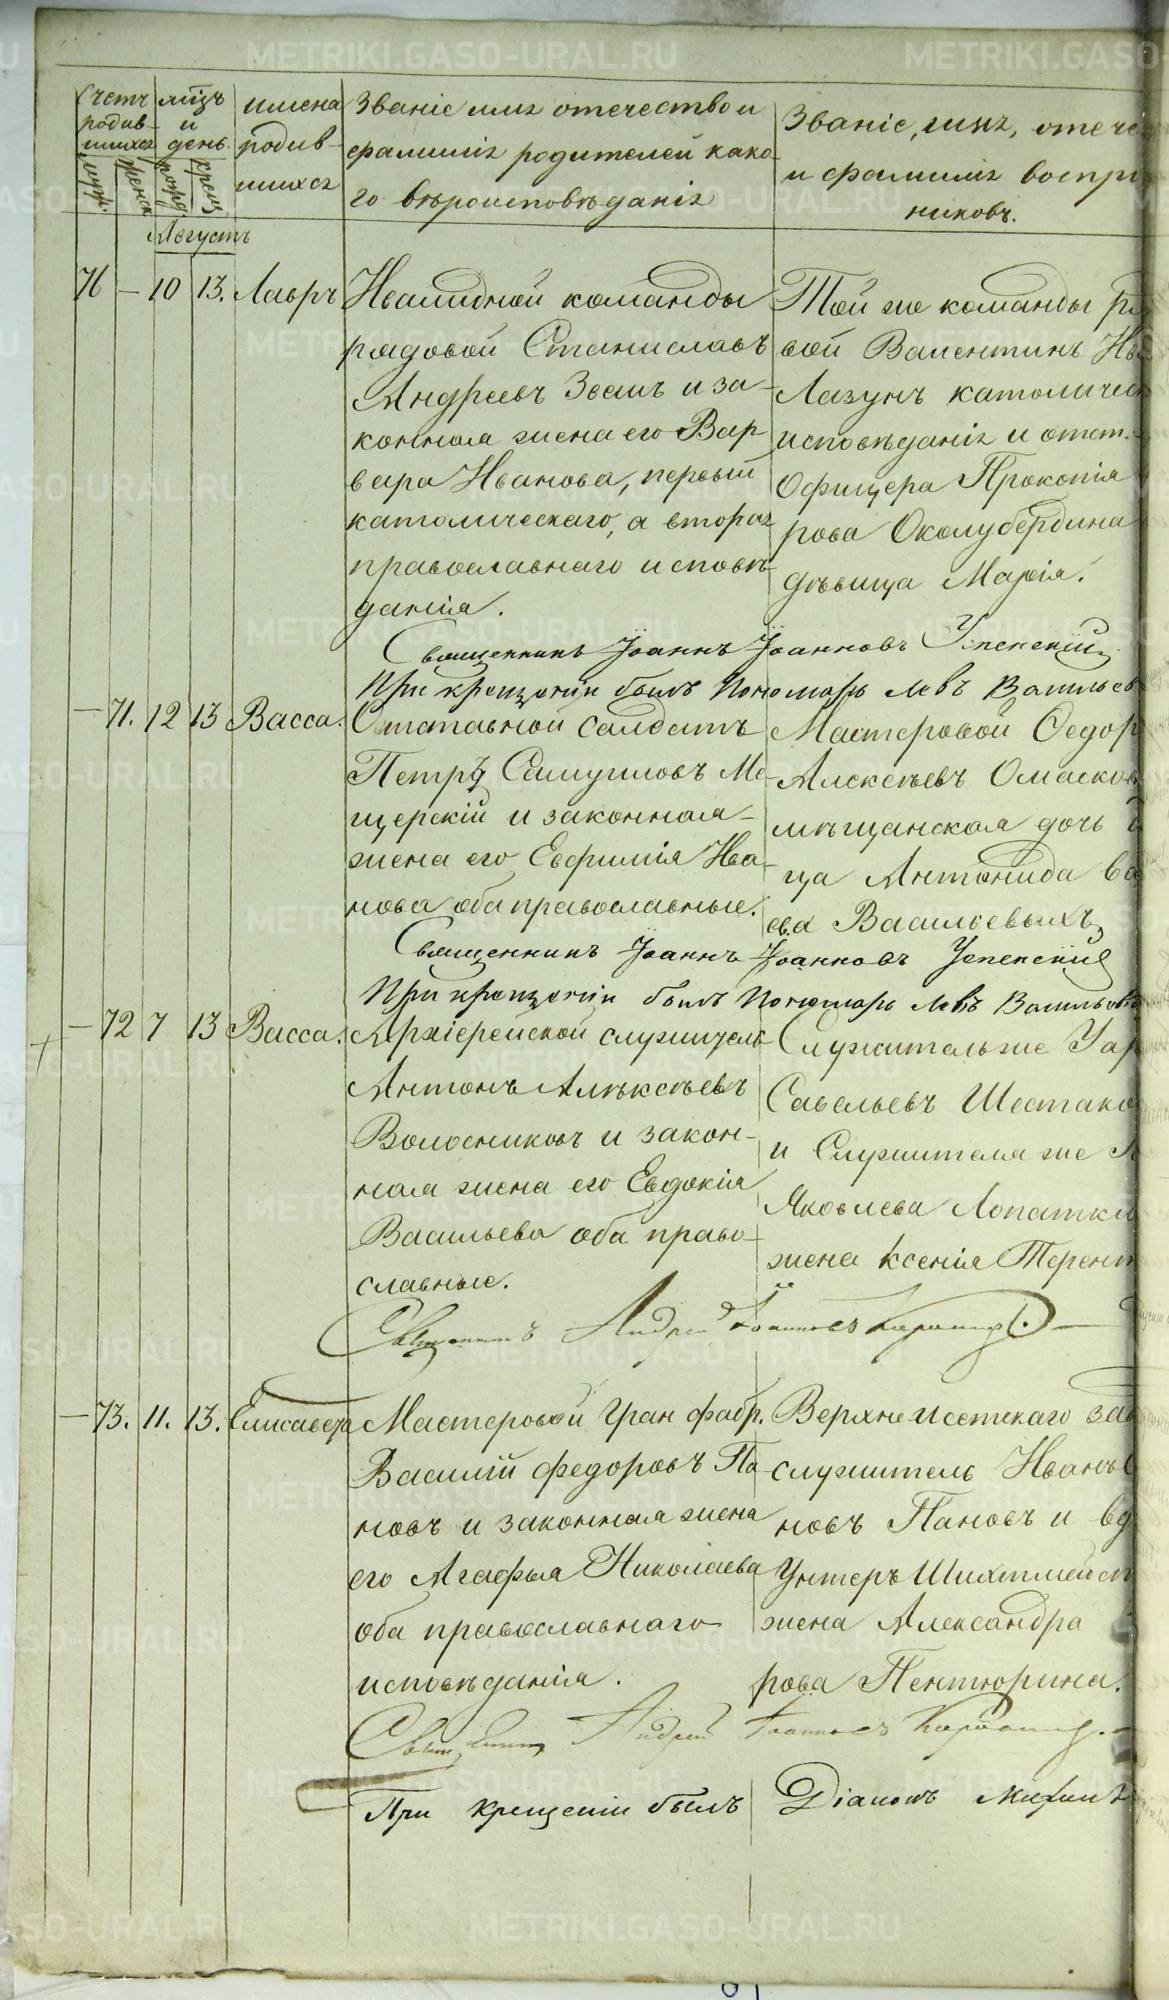 Счетъ родив-шихся
муж. женск
мѣсяцъ и день.
рожд крещ
имена родив-шихся
Званіе имя отечество и фамилія родителей како-го вѣроисповѣданія
Званіе, имя, отече
и фамилія воспр
никовъ.
Августъ
76 — 10 13. Лавръ
Инвалидной команды
рядовой Станиславъ
Андреевъ Звешъ и за-
конная жена его Вар-
вара Иванова, первый
католическаго, а вторая
православнаго исповѣ-
данія.
Той же команды р
вой Валентинъ Ив
Лазунъ католичес
исповѣданія и отст.
Офицера Прокопія
рова Околубердина
дѣвица Марія.
Священникъ Іоаннъ Іоанновъ Успенскій
При крещеніи былъ Пономарь Левъ Васильев
— 71. 12 13 Васса.
Отставной салдатъ
Петръ Самуиловъ Ме-
щерскій и законная
жена его Евфимія Ива-
нова оба православные.
Мастеровой Федор
Алексѣевъ Омасков
мѣщанская дочь
ца Антонида Ва
ева Васильевыхъ
Священникъ Іоаннъ Іоанновъ Успенскій
При крещеніи былъ Пономарь Левъ Васильевъ
— 72 7 13 Васса.
Архіерейской служитель
Антонъ Алѣксѣевъ
Волосниковъ и закон-
ная жена его Евдокія
Васильева оба право-
славные.
Служитель же Уар
Савельевъ Шестако
и Служителя же
Яковлева Лопатки
жена Ксенія Терент
Священникъ Андрей Іоанновъ
— 73. 11. 13. Елисавета
Мастеровой Гран фабр.
Василій Федоровъ Па-
новъ и законная жена
его Агафья Николаева
оба православнаго
исповѣданія.
Верхне Исетскаго зав
служитель Иванъ
новъ Пановъ и вд
Унтеръ Шихтмейст
жена Александра
рова Пентюрина.
Священникъ Андрей Іоанновъ
При крещеніи былъ Діаконъ
METRIKI.GASO-URAL.RU